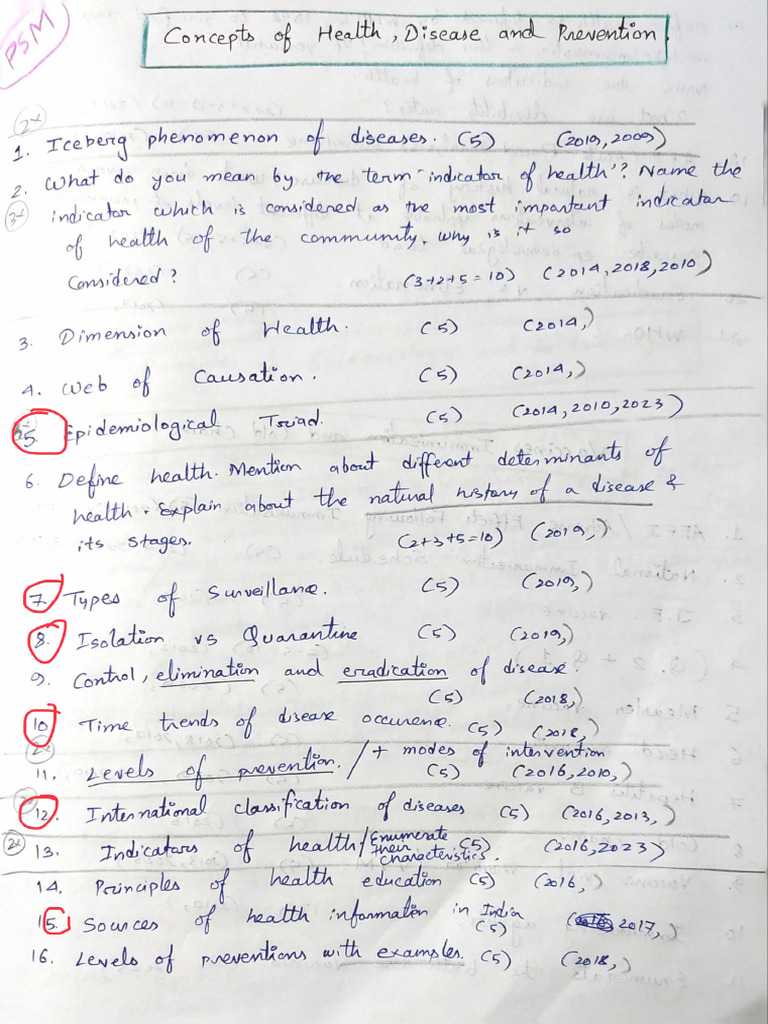 PSM
Concepts of Health, Disease and Prevention.
2*
1. Iceberg phenomenon of diseases. (5) (2019, 2009)
2. What do you mean by the term 'indicator of health'? Name the
3* indicator which is considered as the most important indicator
of health of the community. why is it so
considered? (3+2+5=10) (2014, 2018, 2010)
3. Dimension of Health. (5) (2014,)
4. Web of Causation. (5) (2014,)
5. Epidemiological Triad. (5) (2014, 2010, 2023)
6. Define health. Mention about different determinants of
health. Explain about the natural history of a disease &
its stages. (2+3+5=10) (2019,)
7. Types of Surveillance. (5) (2019,)
8. Isolation vs Quarantine (5) (2019,)
9. Control, elimination and eradication of disease.
(5) (2018,)
10 Time trends of disease occurence. (5) (2018,)
2*
11. Levels of prevention. / + modes of intervention
(5) (2016, 2010,)
12. International classification of diseases (5) (2016, 2013,)
2* 13. Indicators of health / Enumerate their characteristics. (5) (2016, 2023)
14. Principles of health education (5) (2016,)
15. Sources of health information in India
(5) (2017,)
16. Levels of preventions with examples. (5) (2018,)